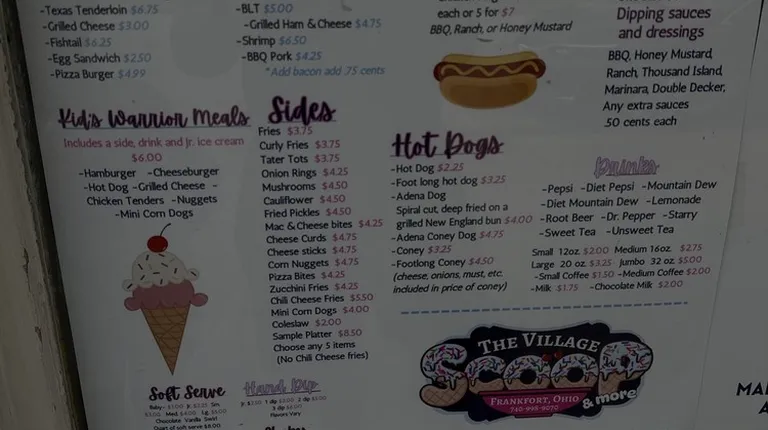 -Texas Tenderloin $6.75
-Grilled Cheese $3.00
-Fishtail $6.25
-Egg Sandwich $2.50
-Pizza Burger $4.99
-BLT $5.00
-Grilled Ham & Cheese $4.75
-Shrimp $6.50
-BBQ Pork $4.25
*Add bacon add .75 cents
each or 5 for $7
BBQ, Ranch, or Honey Mustard
Dipping sauces
and dressings
BBQ, Honey Mustard,
Ranch, Thousand Island,
Marinara, Double Decker,
Any extra sauces
.50 cents each
Kid's Warrior Meals
Includes a side, drink and Jr. ice cream
$6.00
-Hamburger -Cheeseburger
-Hot Dog -Grilled Cheese -
Chicken Tenders -Nuggets
-Mini Corn Dogs
Sides
Fries $3.75
Curly Fries $3.75
Tater Tots $3.75
Onion Rings $4.25
Mushrooms $4.50
Cauliflower $4.50
Fried Pickles $4.50
Mac & Cheese bites $4.25
Cheese Curds $4.75
Cheese sticks $4.75
Corn Nuggets $4.75
Pizza Bites $4.25
Zucchini Fries $4.25
Chili Cheese Fries $5.50
Mini Corn Dogs $4.00
Coleslaw $2.00
Sample Platter $8.50
Choose any 5 items
(No Chili Cheese fries)
Hot Dogs
-Hot Dog $2.25
-Foot long hot dog $3.25
-Adena Dog
Spiral cut, deep fried on a
grilled New England bun $4.00
-Adena Coney Dog $4.75
-Coney $3.25
-Footlong Coney $4.50
(cheese, onions, must, etc.
included in price of coney)
Drinks
-Pepsi -Diet Pepsi -Mountain Dew
-Diet Mountain Dew -Lemonade
-Root Beer -Dr. Pepper -Starry
-Sweet Tea -Unsweet Tea
Small 12oz. $2.00 Medium 16oz. $2.75
Large 20 oz. $3.25 Jumbo 32 oz $5.00
-Small Coffee $1.50 -Medium Coffee $2.00
-Milk $1.75 -Chocolate Milk $2.00
The Village
Scoop
& more
Frankfort, Ohio
740-998-9070
Soft Serve
Chocolate Vanilla Swirl
Quart of soft serve $8.00
Hand Dip
Flavors Vary